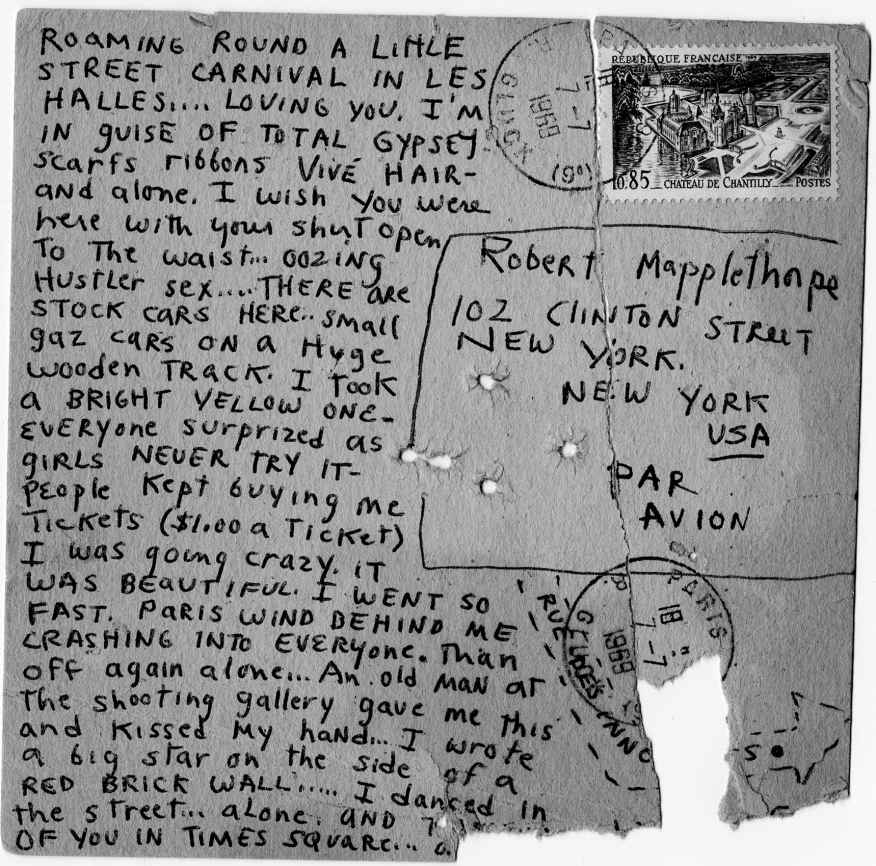 ROAMING ROUND A LITTLE
STREET CARNIVAL IN LES
HALLES.... LOVING YOU. I'M
IN guise OF TOTAL GYPSEY
scarfs ribbons VIVÉ HAIR-
and alone. I wish you were
here with your shirt open
To The waist... oozing
Hustler sex.... THERE are
STOCK CARS HERE.. small
gaz cars ON a Huge
wooden TRACK. I Took
a BRIGHT YELLOW ONE-
EVERYone surprized as
giRLS NEVER TRY IT-
PEOPLE Kept buying me
Tickets ($1.00 a Ticket)
I was going crazy. IT
WAS BEAUTIFUL. I WENT SO
FAST. PARIS WIND BEHIND ME
CRASHING INTO EVERYONE. Than
off again alone... An old MAN at
the shooting gallery gave me this
and kissed My hand... I wrote
a big star on the side of a
RED BRICK WALL..... I danced in
the street... alone. AND
OF YOU IN TIMES SQUARE...
RÉPUBLIQUE FRANÇAISE
0.85 CHATEAU DE CHANTILLY POSTES
PARIS
18H
7-7
1969
R. GLUCK
(9e)
Robert Mapplethorpe
102 CLINTON STREET
NEW YORK.
NEW YORK
USA
PAR
AVION
PARIS
18H
7-7
1969
RUE
INNO
S